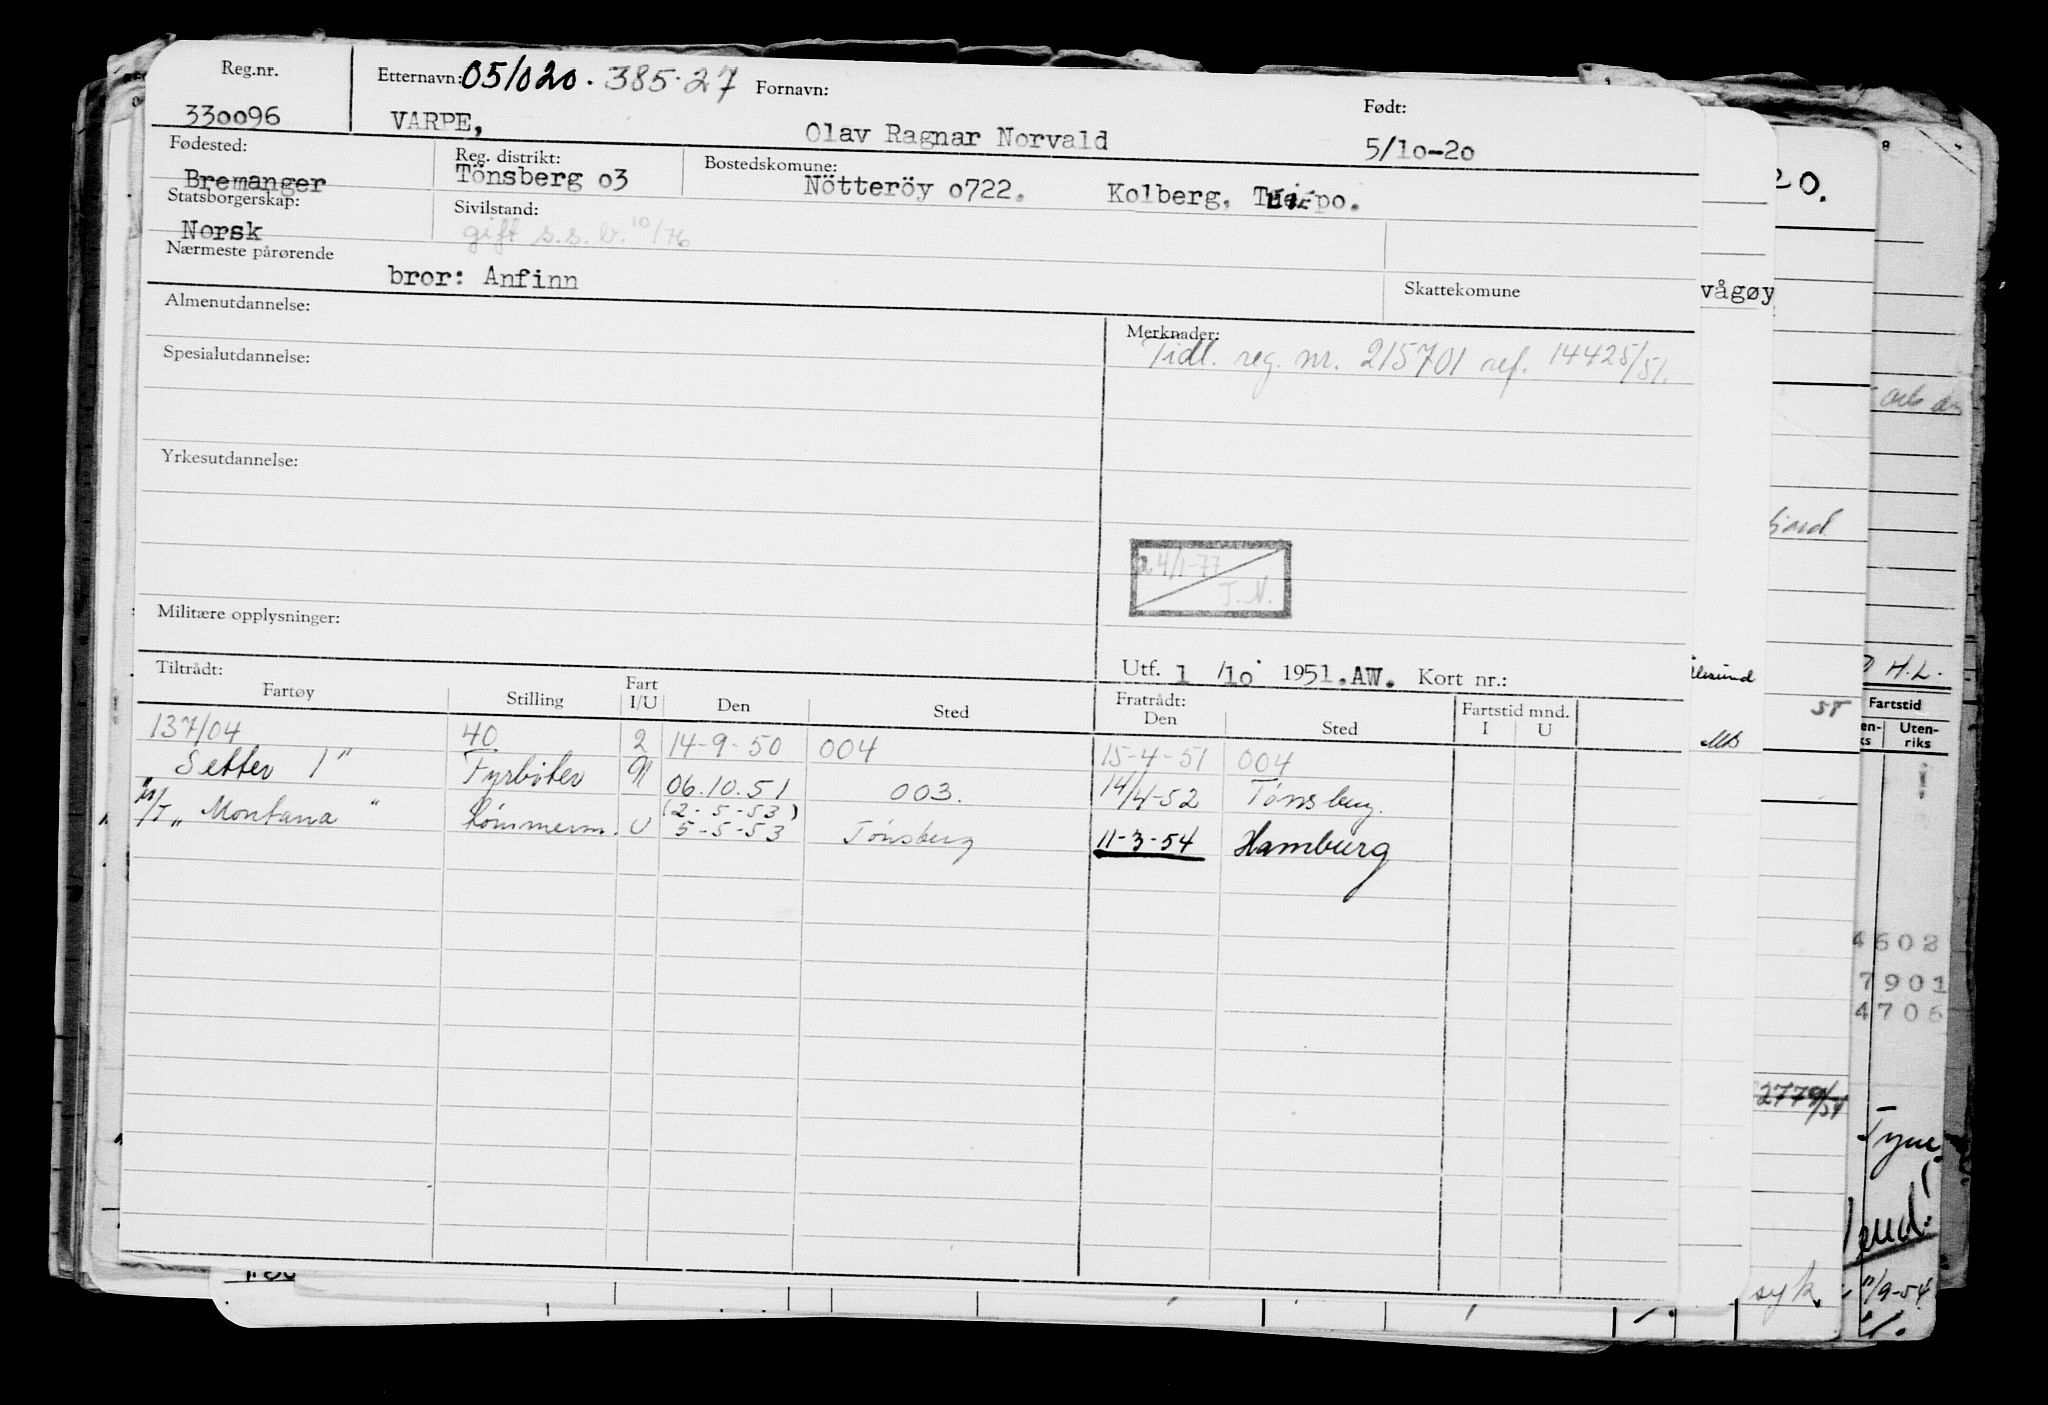 Reg.nr. Etternavn: 051020.385.27 Fornavn: Født:
330096 VARPE, Olav Ragnar Norvald 5/10-20
Fødested: Reg. distrikt: Bostedskomune:
Bremanger Tönsberg o3 Nötteröy o722. Kolberg, po.
Statsborgerskap: Sivilstand:
Norsk gift s.s.b. 10/76
Nærmeste pårørende
bror: Anfinn Skattekomune
vågøy
Almenutdannelse: Merknader:
Tidl. reg. nr. 215701 ref. 14425/51.
Spesialutdannelse:
Yrkesutdannelse:
4/1-77
T.N.
Militære opplysninger:
Tiltrådt: Utf. 1 /10 1951.AW. Kort nr.:
Fartøy Stilling Fart I/U Den Sted Fratrådt: Den Sted Fartstid mnd. I U
137/04 40 2 14-9-50 004 15-4-51 004
Setter I" Fyrbøter N 06.10.51 003. 14/4-52 Tønsberg.
(2-5-53)
M/T "Montana" tømmerm. U 5-5-53 Tønsberg 11-3-54 Hamburg
20.
H.L.
ST
Fartstid
Uten-
riks
4602
7901
4706
2779/54
Tyne
syk. 11/9-54